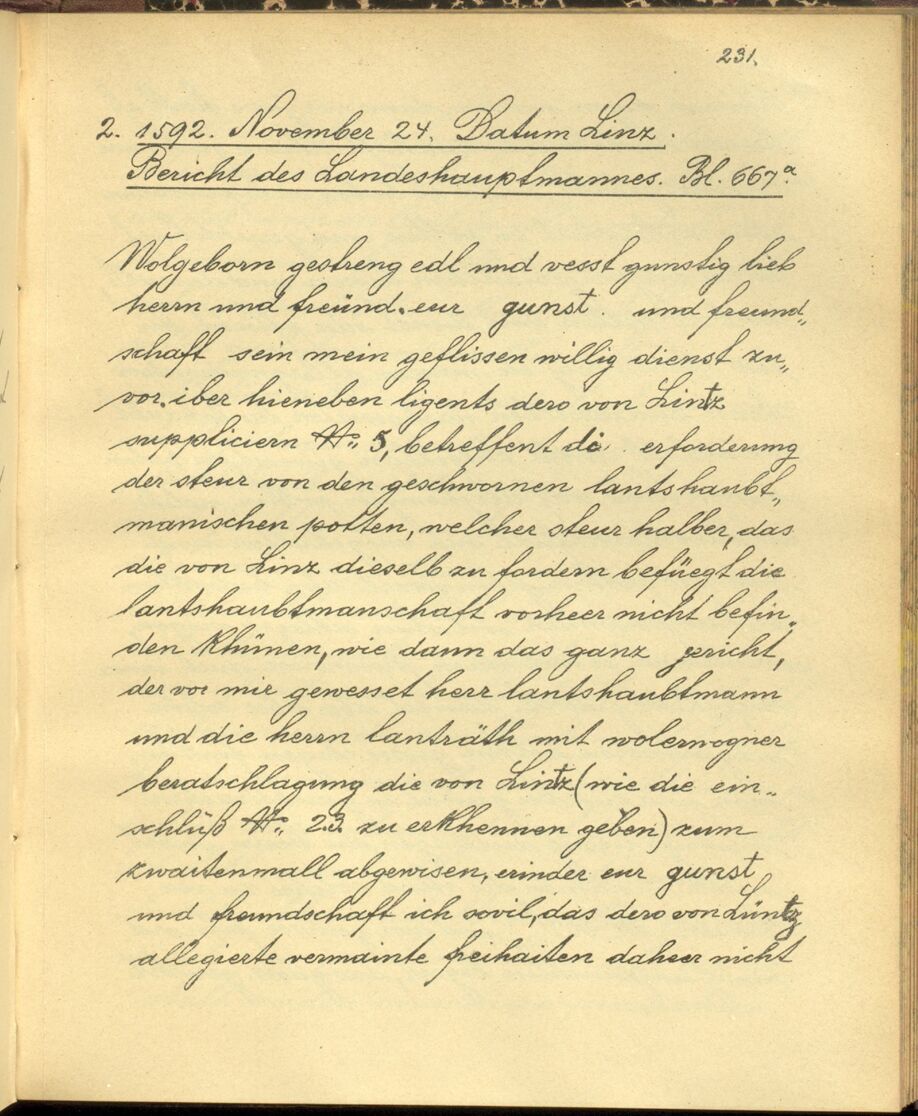 231.
2. 1592. November 24. Datum Linz.
Bericht des Landeshauptmannes. Bl. 667a.
Wolgeborn gestreng edl und vesst gunstig lieb
herrn und freünd. eur gunst. und freund„
schaft sein mein geflissen willig dienst zu„
vor. iber hieneben ligents dero von Lintz
suppliciern No: 5, betreffent di erforderung
der steur von den geschwornen lantshaubt„
manischen potten, welcher steur halber, das
die von Linz dieselb zu fordern befüegt die
lantshaubtmanschaft vorheer nicht befin„
den khünen, wie dann das ganz gericht,
der vor mir gewesset herr lantshaubtmann
und die herrn lanträth mit wolerwogner
beratschlagung die von Lintz (wie die ein„
schlüß No: 2.3. zu erkhennen geben) zum
zwaitenmall abgewisen, erinder eur gunst
und freundschaft ich sovil, das dero von Lüntz
allegierte vermainte freihaiten daheer nicht